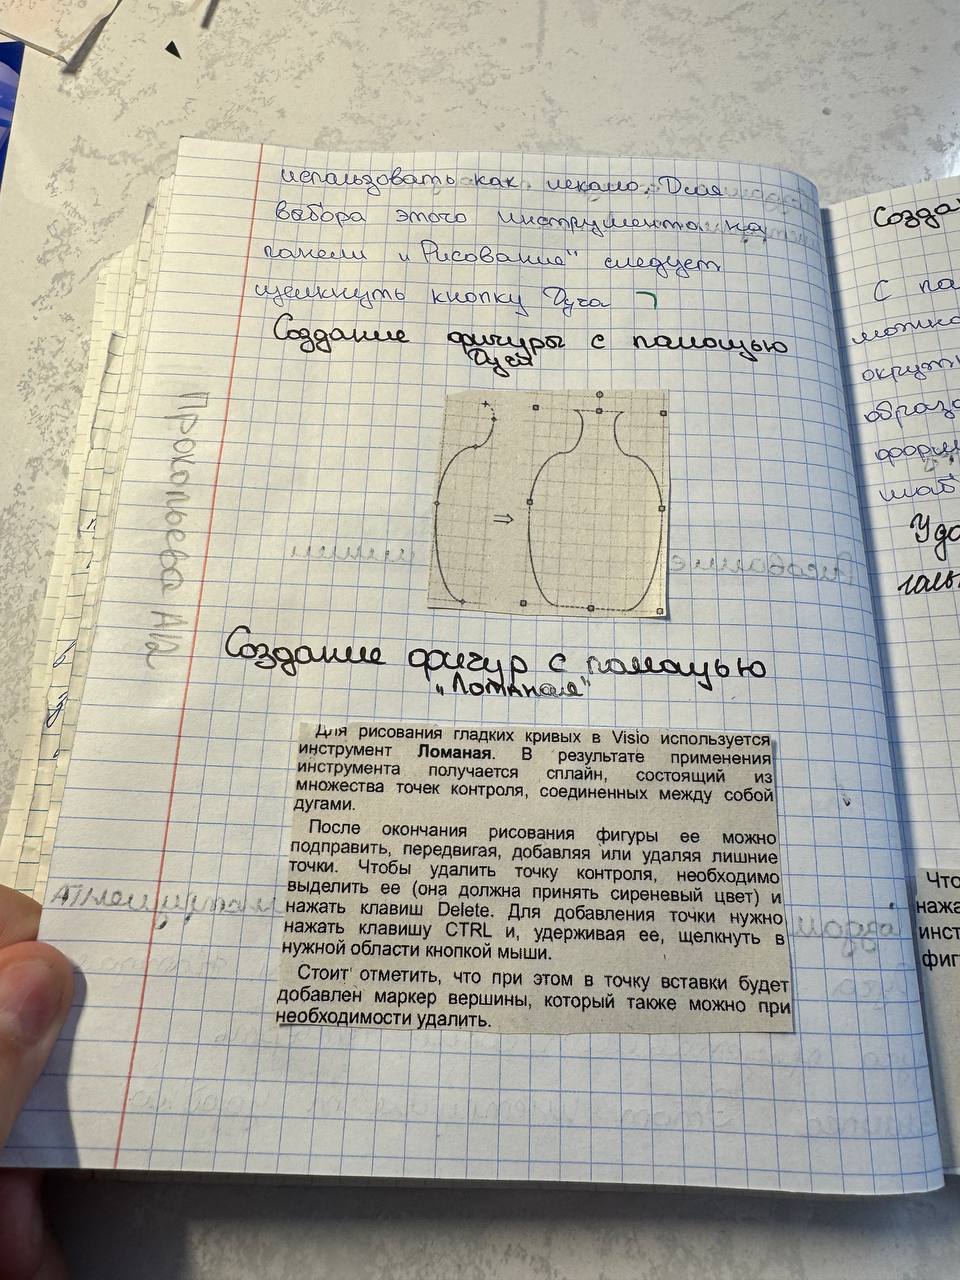 использовать как лекало. Для
выбора этого инструмента на
панели „Рисование" следует
щелкнуть кнопку Дуга
Создание фигуры с помощью
Дуга
⇒
Прокопьева А/2
Создание фигур с помощью
„Ломаная"
Для рисования гладких кривых в Visio используется
инструмент Ломаная. В результате применения
инструмента получается сплайн, состоящий из
множества точек контроля, соединенных между собой
дугами.
После окончания рисования фигуры ее можно
подправить, передвигая, добавляя или удаляя лишние
точки. Чтобы удалить точку контроля, необходимо
выделить ее (она должна принять сиреневый цвет) и
нажать клавиш Delete. Для добавления точки нужно
нажать клавишу CTRL и, удерживая ее, щелкнуть в
нужной области кнопкой мыши.
Стоит отметить, что при этом в точку вставки будет
добавлен маркер вершины, который также можно при
необходимости удалить.
Созда
С по
можно
окруж
образо
форм
шаб
Удо
галь
Что
нажа
инст
фиг